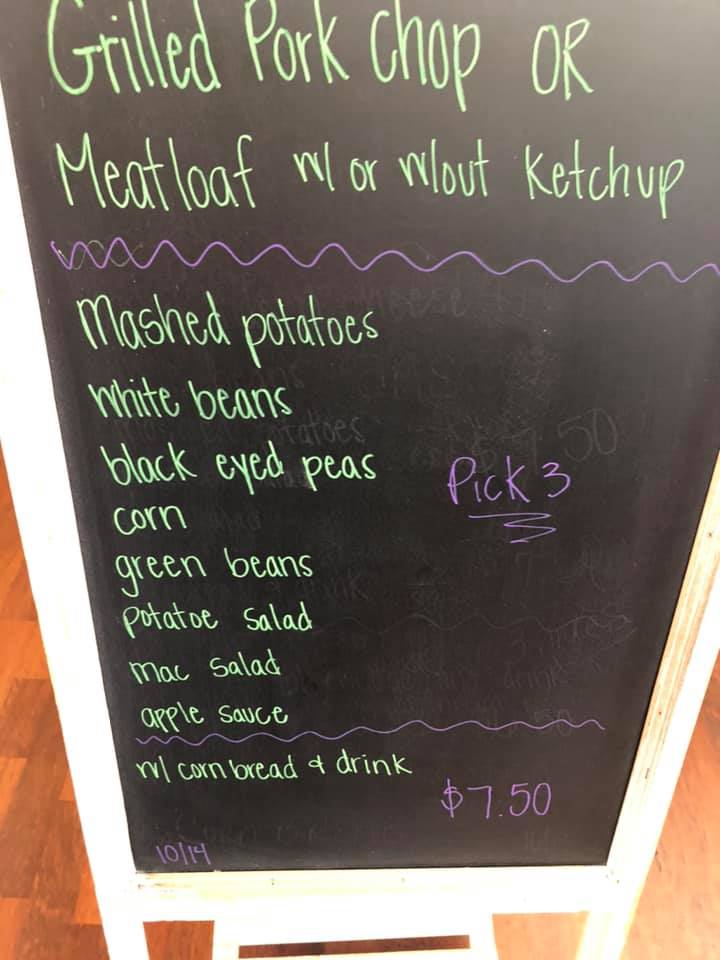 Grilled Pork Chop OR
Meatloaf w/ or w/out Ketchup
Mashed potatoes
white beans
black eyed peas
Pick 3
corn
green beans
potatoe salad
mac salad
apple sauce
w/ corn bread & drink
$7.50
10/14